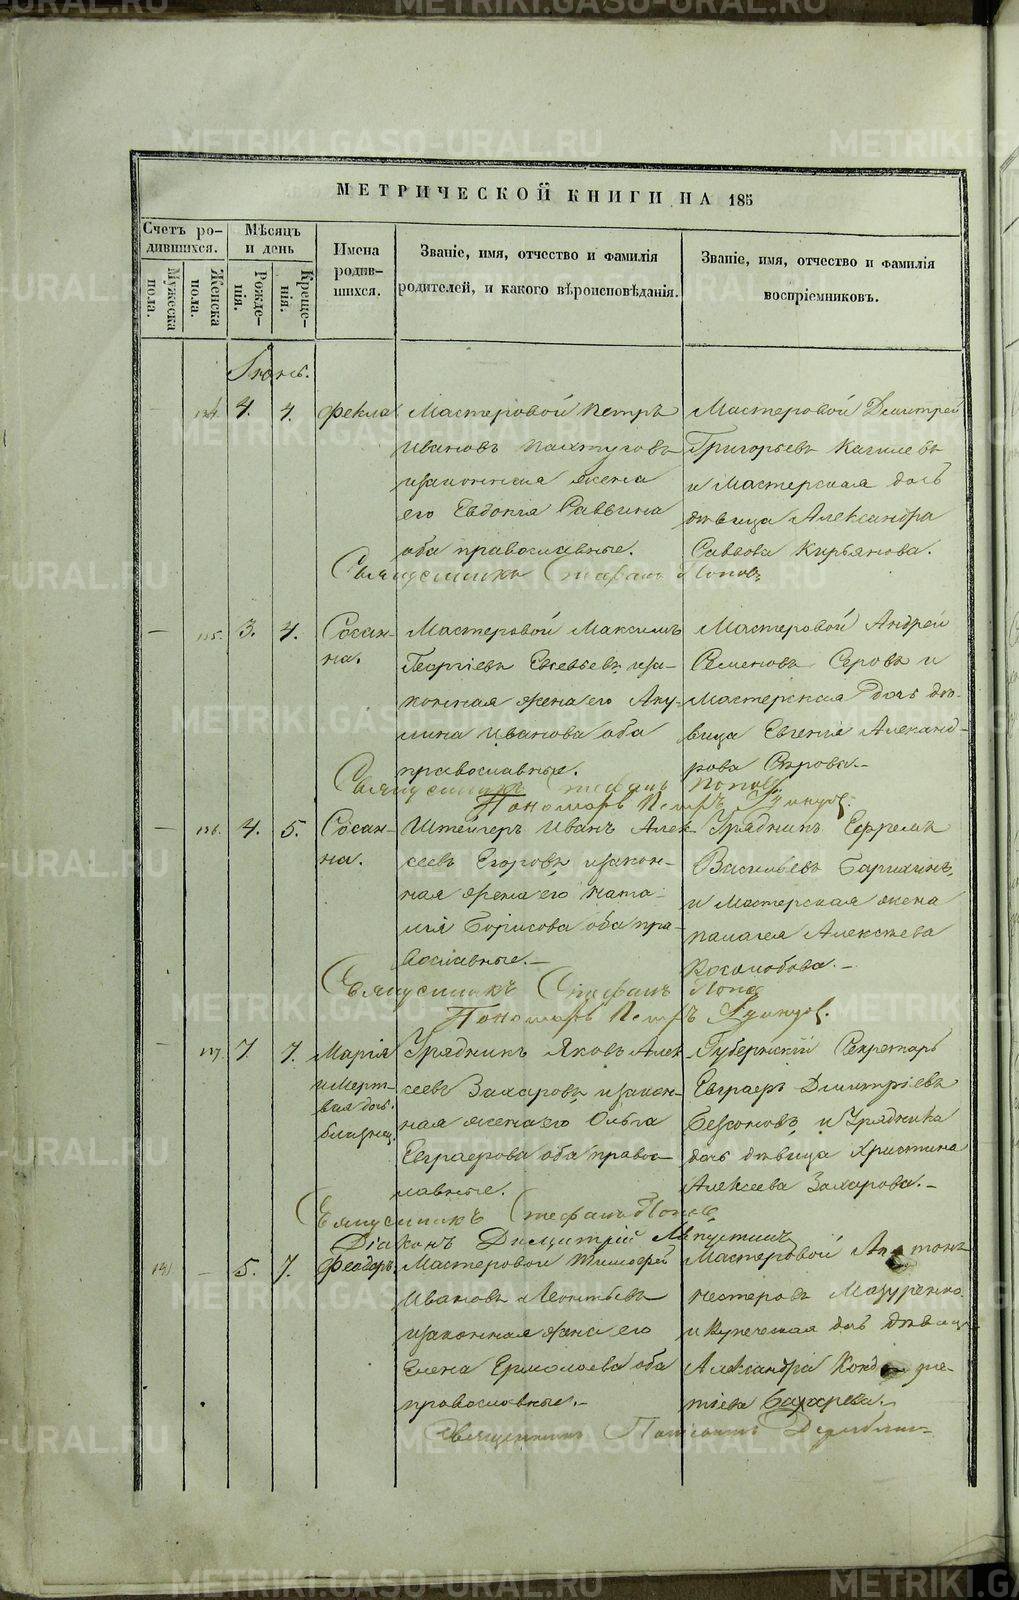 МЕТРИЧЕСКОЙ КНИГИ НА 185
Счетъ ро-
дившихся.
Мѣсяцъ
и день
Имена
родив-
шихся.
Званіе, имя, отчество и фамилія
родителей, и какого вѣроисповѣданія.
Званіе, имя, отчество и фамилія
воспріемниковъ.
Мужеска
пола.
Женска
пола.
Рожде-
нія.
Креще-
нія.
Іюнь.
4. 4. Фекла Мастеровой Петръ
Ивановъ и законная жена
его Евдокія Саввина
оба православные.
Мастеровой Дмитрей
Григорьевъ
и Мастерская дочь
дѣвица Александра
Саввова Кирьянова.
Священникъ Стефанъ Поповъ
— 135. 3. 4. Сосан-
на.
Мастеровой Максимъ
Георгіевъ Евсевьевъ, и за-
конная жена его Аку-
лина Иванова оба
православные.
Мастеровой Андрей
Семеновъ Серовъ и
Мастерская дочь дѣ-
вица Евгенія Александ-
рова Серова.—
Священникъ Стефанъ Поповъ.
Пономарь Петръ
— 136. 4. 5. Сосан-
на.
Штейгеръ Иванъ Алек-
сеевъ Егоровъ, и закон-
ная жена его Ната-
лія Борисова оба пра-
вославные.—
Урядникъ Ефремъ
Васильевъ
и Мастерская жена
Палагея Алексѣева
Косолобова.—
Священникъ Стефанъ Попов
Пономарь Петръ
— 137. 7. 7. Марія
и мерт-
вая дочь
близнец.
Урядникъ Яковъ Алек-
сеевъ Захаровъ, и закон-
ная жена его Ольга
Евграфова оба право-
славные.
Губернскій Секретарь
Евграфъ Дмитріевъ
Безсоновъ, и Урядника
дочь дѣвица Христина
Алексеева Захарова.—
Священникъ Стефанъ Поповъ
Діаконъ Димитрій
— 5. 7. Феодоръ. Мастеровой Тимофей
Ивановъ Леонтьевъ
и законная жена его
Елена Ермолаева оба
православные.—
Мастеровой Антонъ
Нестеровъ Мазуренко
и Купеческая дочь дѣвица
Александра
Священникъ